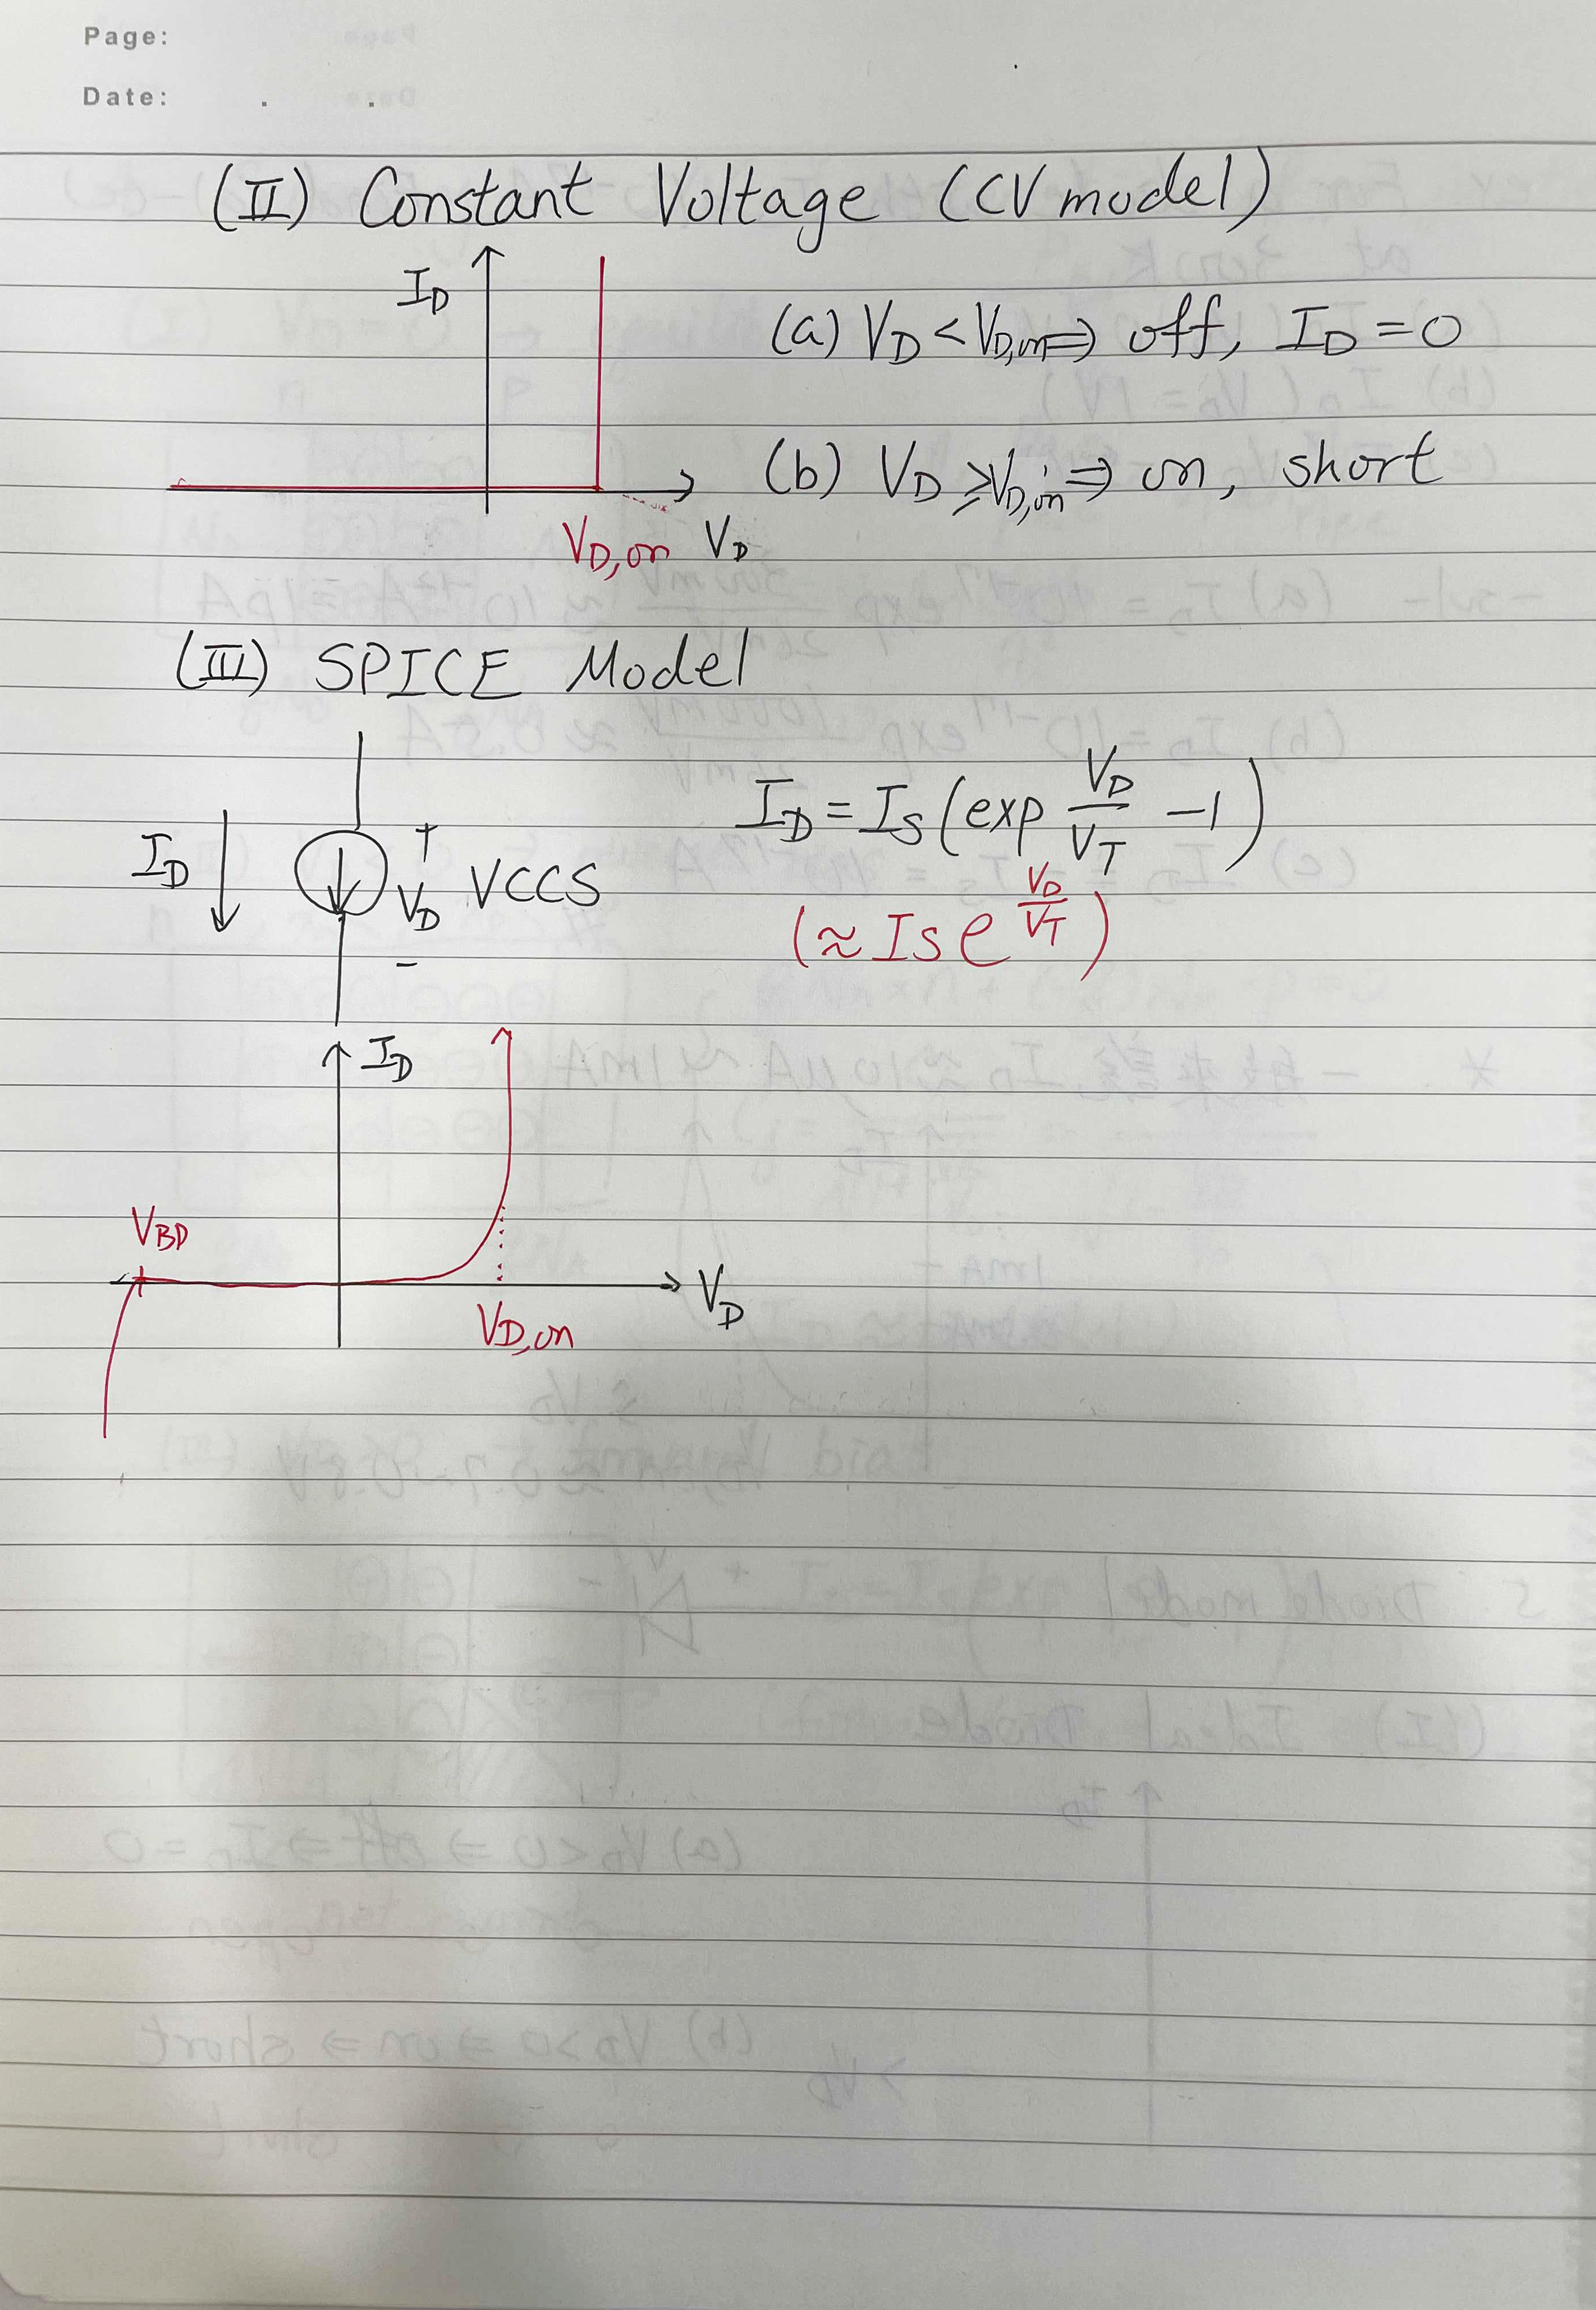 Page:
Date: . .
(II) Constant Voltage (CV model)
I_D
(a) V_D < V_D,on ⇒ off, I_D = 0
(b) V_D ≥ V_D,on ⇒ on, short
V_D,on V_D
(III) SPICE Model
I_D = I_S (exp V_D/V_T - 1)
I_D + V_D - VCCS
(≈ I_S e^(V_D/V_T))
I_D
V_BD
V_D
V_D,on